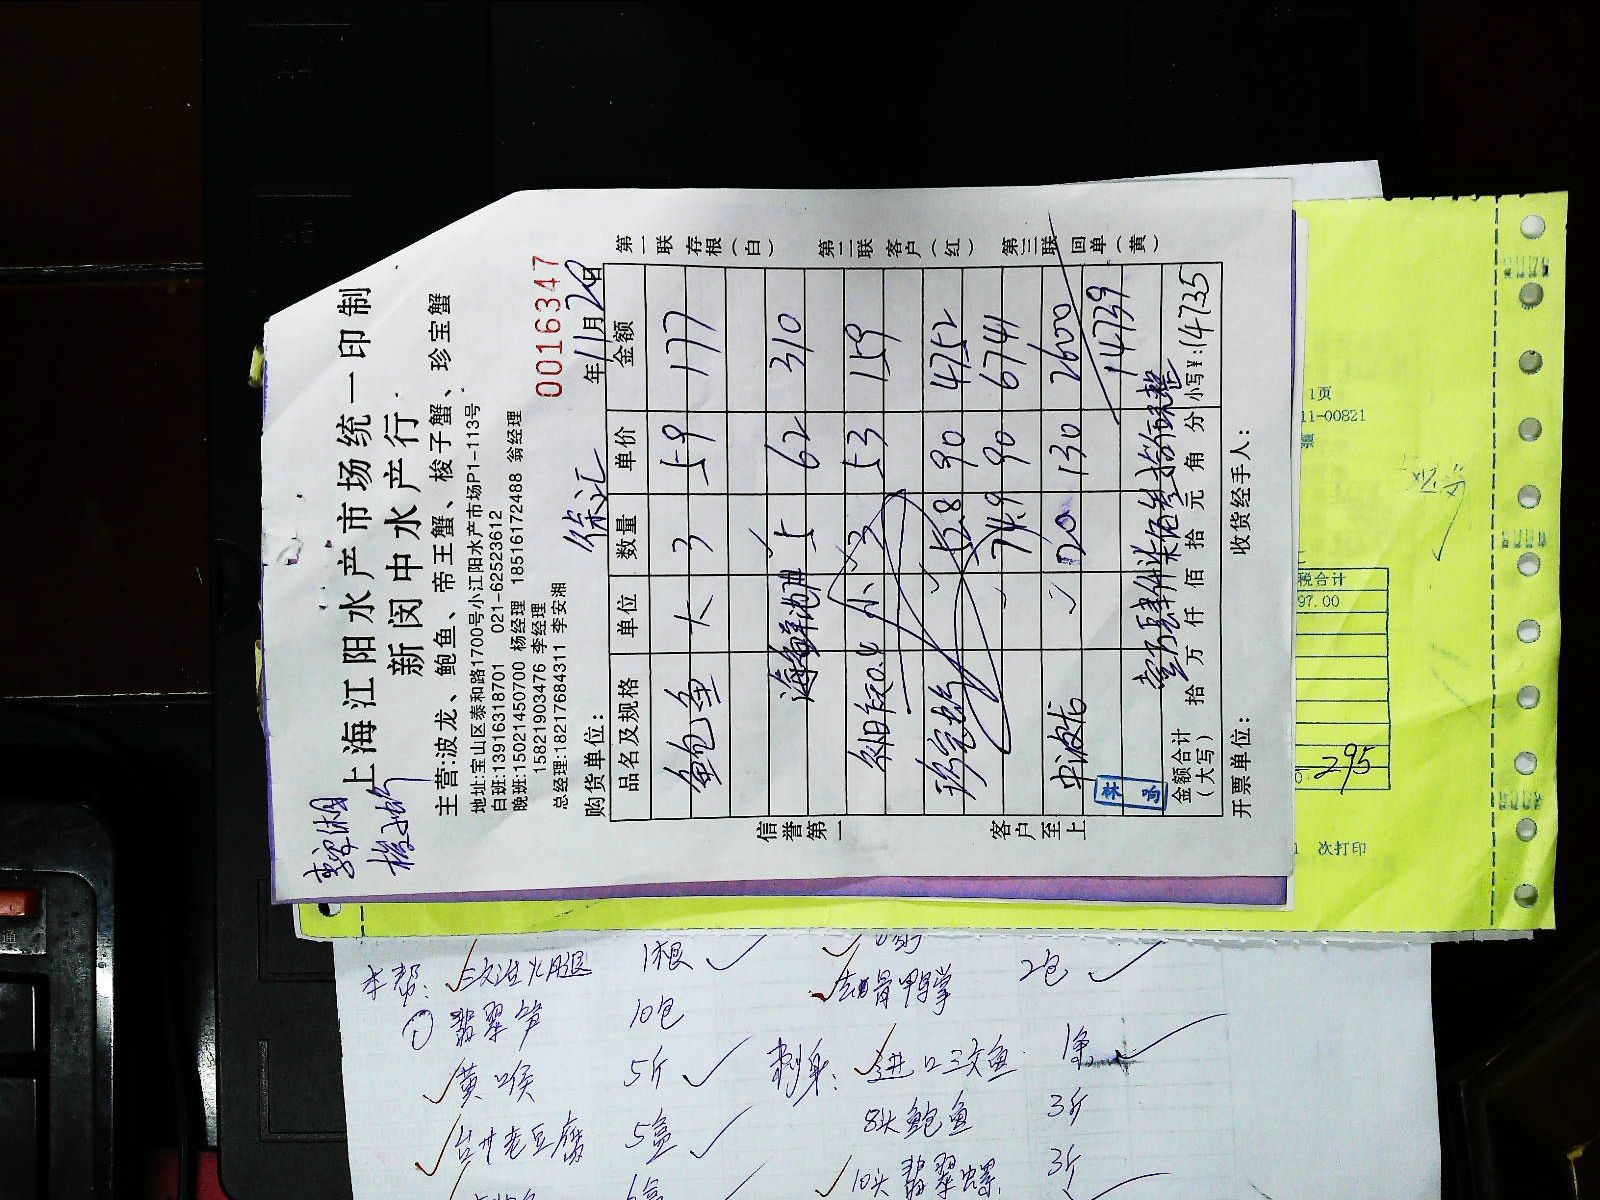 上海江阳水产市场统一印制
新闵中水产行
主营:波龙、鲍鱼、帝王蟹、梭子蟹、珍宝蟹
地址:宝山区泰和路1700号小江阳水产市场P1-113号
白班:13916318701 021-62523612
晚班:15021450700 杨经理 18516172488 翁经理
15821903476 李经理
总经理:18217684311 李安湘
0016347
购货单位: 徐汇 年11月20日
品名及规格 单位 数量 单价 金额
鲍鱼 大 3 59 177
海鲜池 5 62 310
小 3 53 159
珍宝蟹 52.8 90 4752
74.9 90 6741
中波龙 20 130 2600
14739
金额合计(大写) 拾 万 仟 佰 拾 元 角 分 小写¥:14735
开票单位: 收货经手人:
信誉第一 客户至上
第一联 存根(白)
第二联 客户(红)
第三联 回单(黄)
1页
11-00821
税合计
97.00
295
次打印
本帮: 三文治火腿 1根
① 翡翠笋 10包
黄喉 5斤
老豆腐 5盒
去骨鸭掌 2包
刺身: 进口三文鱼 1条
8头鲍鱼 3斤
10头翡翠螺 3斤